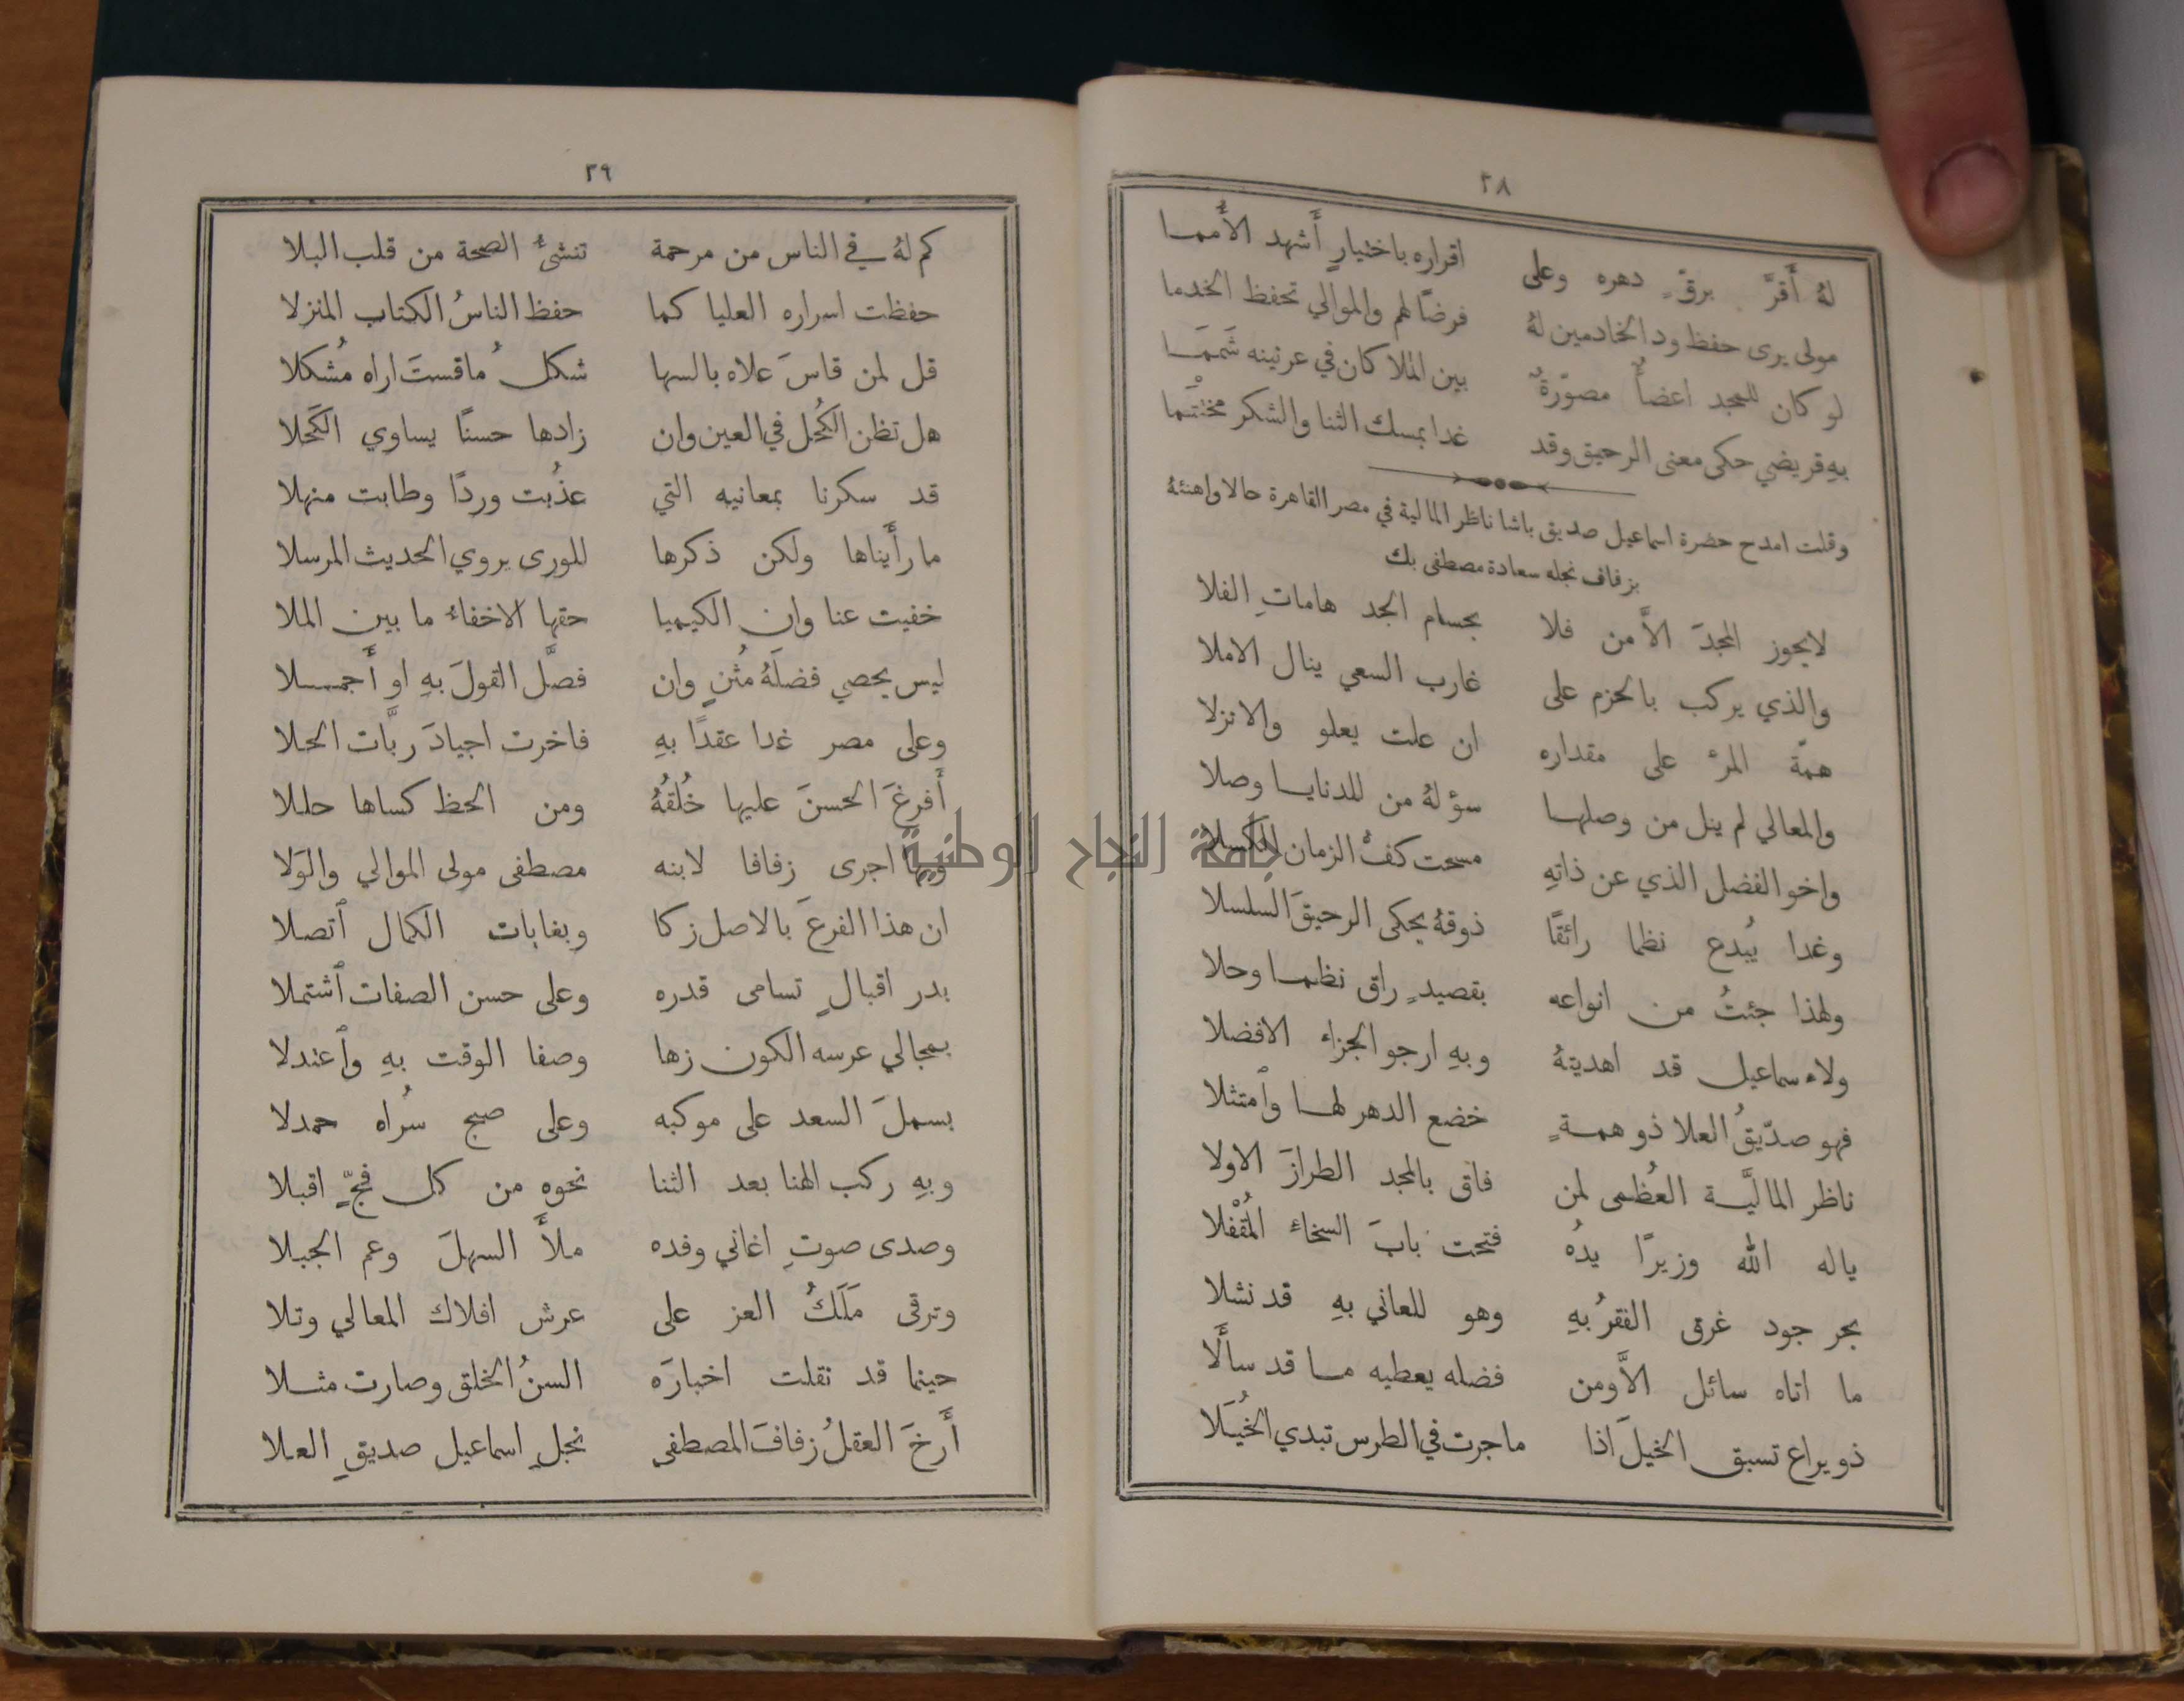 ٢٨
لهُ أَقرَّ برقٍّ دهره وعلى اقراره باختيارٍ أَشهد الأُمما
مولى يرى حفظ ود الخادمين لهُ فرضًا لهم والموالي تحفظ الخدما
لو كان للمجد اعضاءٌ مصوّرةٌ بين الملا كان في عرنينه شَمَمَا
بهِ قريضي حكى معنى الرحيق وقد غدا بمسك الثنا والشكر مختَتَما
وقلت امدح حضرة اسماعيل صديق باشا ناظر المالية في مصر القاهرة حالا واهنئهُ
بزفاف نجله سعادة مصطفى بك
لايحوز المجدَ الاَّ من فلا بحسام الجد هاماتِ الفلا
والذي يركب بالحزم على غارب السعي ينال الاملا
همّة المرء على مقداره ان علت يعلو والا نزلا
والمعالي لم ينل من وصلها سؤلهُ من للدنايا وصلا
واخو الفضل الذي عن ذاتهِ مسحت كفُّ الزمان الكسلا
وغدا يُبدع نظما رائقًا ذوقهُ يحكى الرحيقَ السلسلا
ولهذا جئتُ من انواعه بقصيدٍ راق نظما وحلا
ولاءسماعيل قد اهديتهُ وبهِ ارجو الجزاء الافضلا
فهو صدّيقُ العلا ذو همةٍ خضع الدهر لها وٱمتثلا
ناظر الماليَّة العُظمى لمن فاق بالمجد الطرازَ الاولا
ياله الله وزيرًا يدُه فتحت بابَ السخاء المُقْفَلا
بحر جود غرق الفقرُ بهِ وهو للعاني بهِ قد نشلا
ما اتاه سائل الاَّ ومن فضله يعطيه ما قد سأَلَا
ذو يراع تسبق الخيلَ اذا ما جرت في الطرس تبدي الخُيَلا
٢٩
كم لهُ في الناس من مرحمة تنشئُ الصحة من قلب البلا
حفظت اسراره العليا كما حفظ الناسُ الكتاب المنزلا
قل لمن قاسَ علاه بالسها شكلُ ماقستَ اراه مُشكلا
هل تظن الكُحْل في العين وان زادها حسنًا يساوي الكَحَلا
قد سكرنا بمعانيه التي عذُبت وردًا وطابت منهلا
ما رأَيناها ولكن ذكرها للورى يروي الحديث المرسلا
خفيت عنا وان الكيميا حقها الاخفاءُ ما بين الملا
ليس يحصي فضلَهُ مُثنٍ وان فصَّل القولَ بهِ او أَجملا
وعلى مصر غدا عقدًا بهِ فاخرت اجيادَ ربَّات الحلا
أَفرغَ الحسنَ عليها خُلقهُ ومن الحظ كساها حللا
وبها اجرى زفافا لابنه مصطفى مولى الموالي والوَلا
ان هذا الفرعَ بالاصل زكا وبغايات الكمال ٱتصلا
بدر اقبالٍ تسامى قدره وعلى حسن الصفات ٱشتملا
بمجالي عرسه الكون زها وصفا الوقت بهِ وٱعتدلا
بسملَ السعد على موكبه وعلى صبح سُراه حمدلا
وبهِ ركب الهنا بعد الثنا نحوه من كل فجّ‍ٍ اقبلا
وصدى صوتِ اغاني وفده ملأَ السهلَ وعم الجبلا
وترقى مَلَكُ العز على عرش افلاك المعالي وتلا
حينما قد نقلت اخبارَه السنُ الخلق وصارت مثلا
أَرخَ العقلُ زفافَ المصطفى نجلِ اسماعيل صديقِ العلا
جامعة النجاح الوطنية